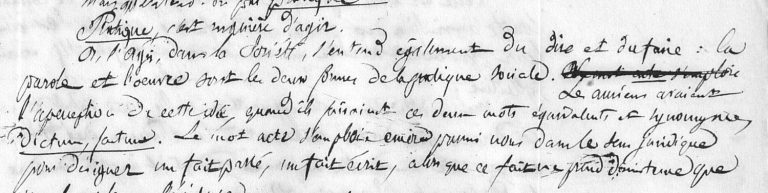 Pratique, c'est manière d'agir.
Or, l'agir, dans la Société, s'entend également du dire et du faire : la
parole et l'œuvre sont les deux formes de la pratique sociale. Le mot acte s'emploie
Les anciens avaient
l'aperception de cette idée, quand ils faisaient ces deux mots équivalents et synonymes,
Dictum, factum. Le mot acte s'emploie encore parmi nous dans le sens juridique
pour désigner un fait passé, un fait écrit, alors que ce fait ne prend d'existence que